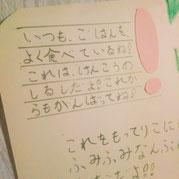 いつも、ごはんを、
よく食べているね!
これは、けんこうの
しるしだよ!!これか
らもがんばってね?
これをもってりこに
ふみふみなんぶ